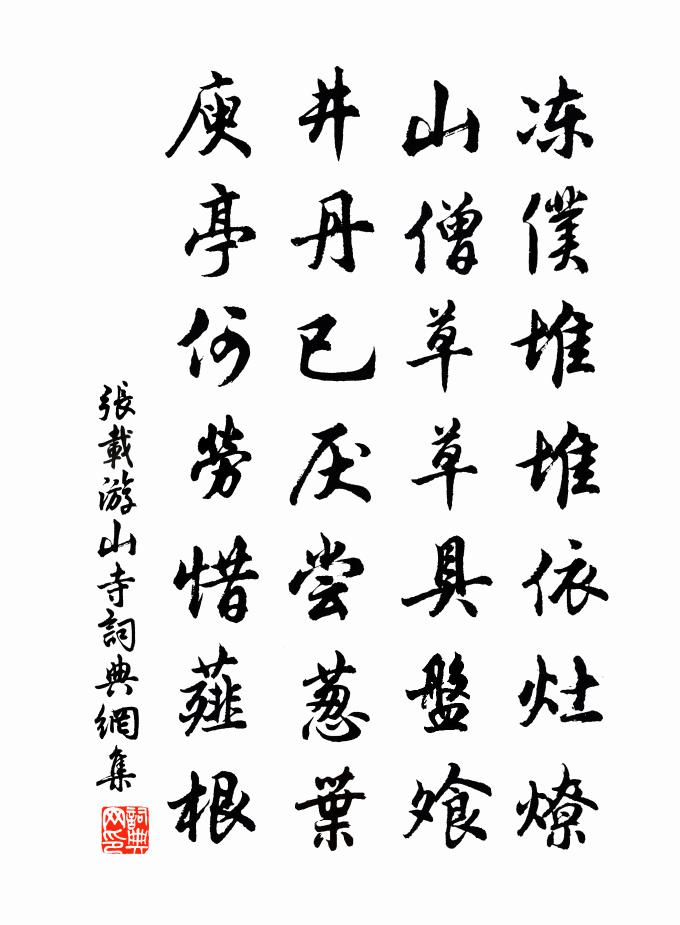 冻僕堆堆依灶燎
山僧草草具盤飧
井丹已厌尝葱葉
庾亭何勞惜薤根
張載游山寺詞典網集
詞典网印